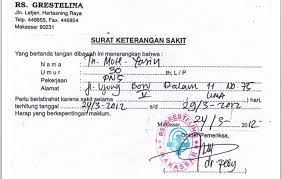 RS. GRESTELINA
Jln. Letjen. Hertasning Raya
Telp. 448855, 448854
Makassar 90231
SURAT KETERANGAN SAKIT
Yang bertanda tangan dibawah ini menerangkan bahwa :
N a m a : Tn. Moh. Yasin
U m u r : 30 th; L / P
Pekerjaan : PNS
Alamat : Jl. Ujung Bori Dalam 11 No. 75
Perlu beristirahat karena sakit selama
terhitung tanggal 24/3-2012 s/d 29/3-2012
Harap yang berkepentingan maklum.
24/3- 2012
Dokter Pemeriksa,
RS GRESTELINA
MAKASSAR
dr